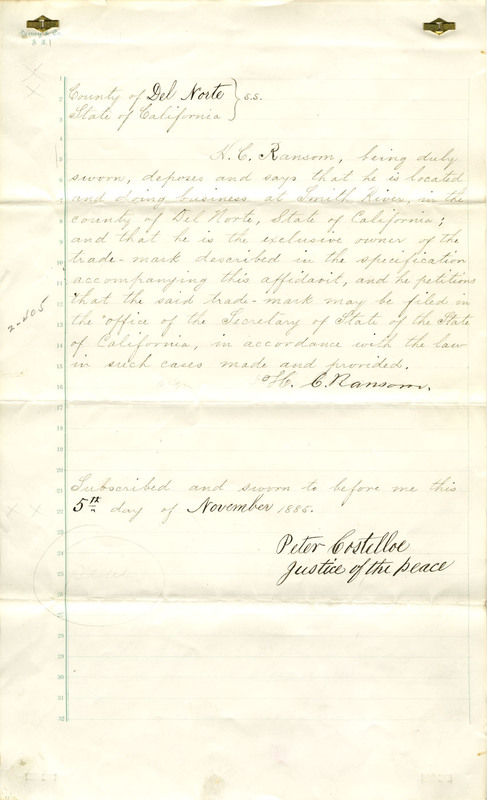 County of Del Norte } s.s.
State of California
H. C. Ransom, being duly
sworn, deposes and says that he is located
and doing business at Smith River, in the
county of Del Norte, State of California;
and that he is the exclusive owner of the
trade-mark described in the specification
accompanying this affidavit, and he petitions
that the said trade-mark may be filed in
the office of the Secretary of State of the State
of California, in accordance with the law
in such cases made and provided.
H. C. Ransom.
Subscribed and sworn to before me this
5th day of November 1885.
Peter Costelloe
Justice of the peace
1
2
3
4
5
6
7
8
9
10
11
12
13
14
15
16
17
18
19
20
21
22
23
24
25
26
27
28
29
30
31
32